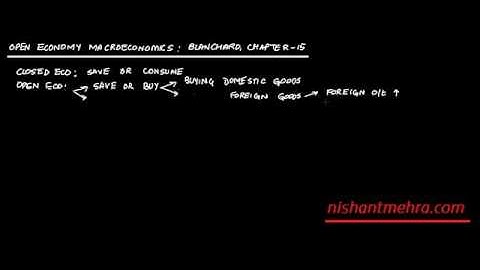 OPEN ECONOMY MACROECONOMICS: BLANCHARD, CHAPTER-15
CLOSED ECO: SAVE OR CONSUME
OPEN ECO: SAVE OR BUY BUYING DOMESTIC GOODS
FOREIGN GOODS → FOREIGN O/P ↑
nishantmehra.com